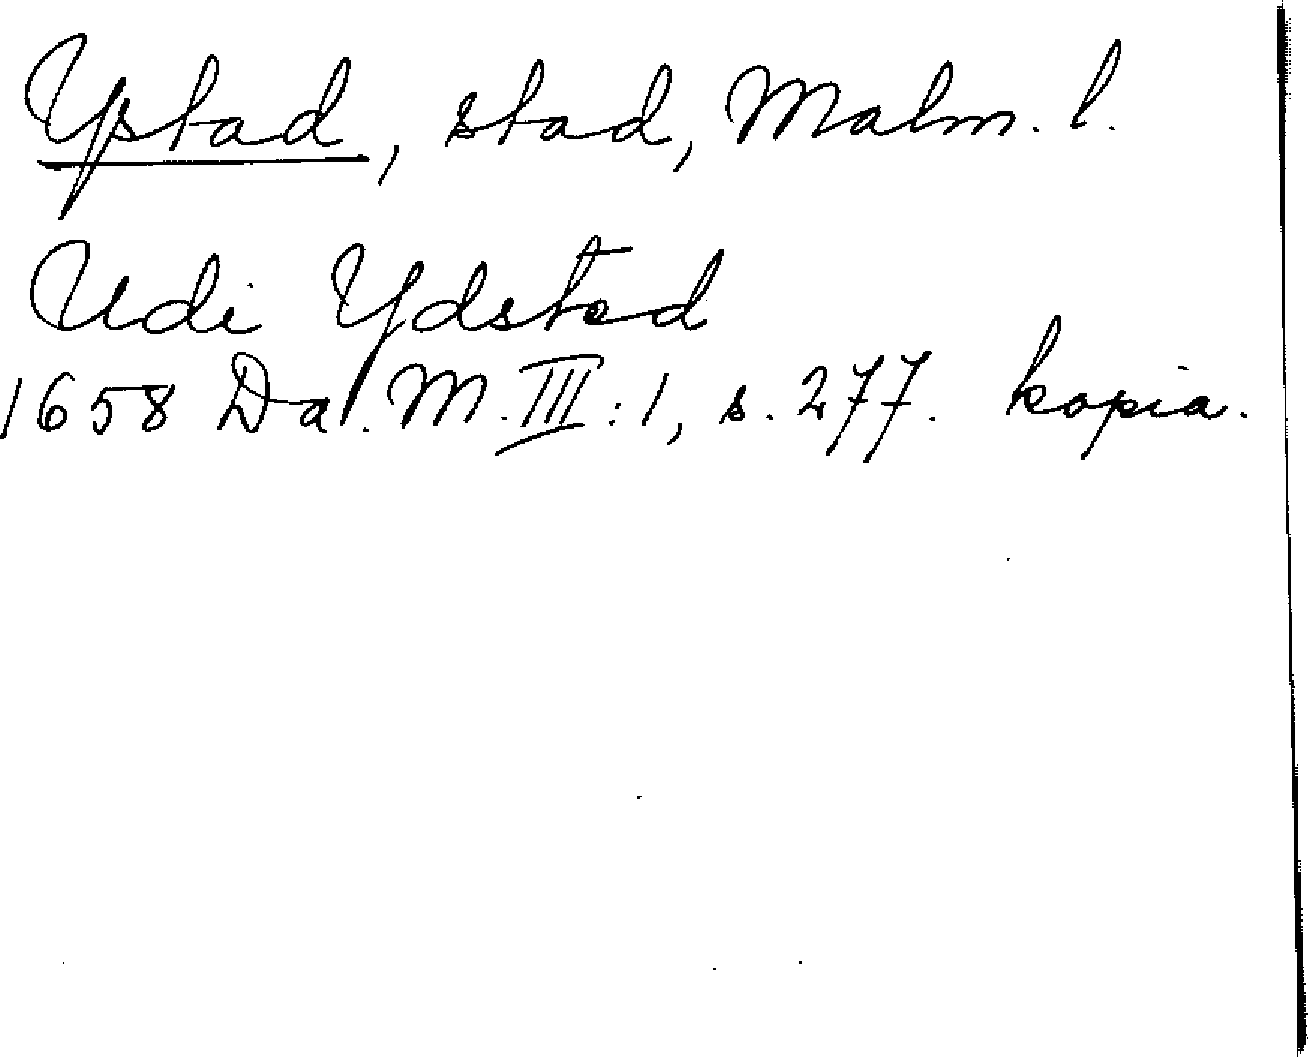 Ystad, stad, Malm. l.
Udi Ydsted
1658 Da. M. III:1, s. 277. kopia.